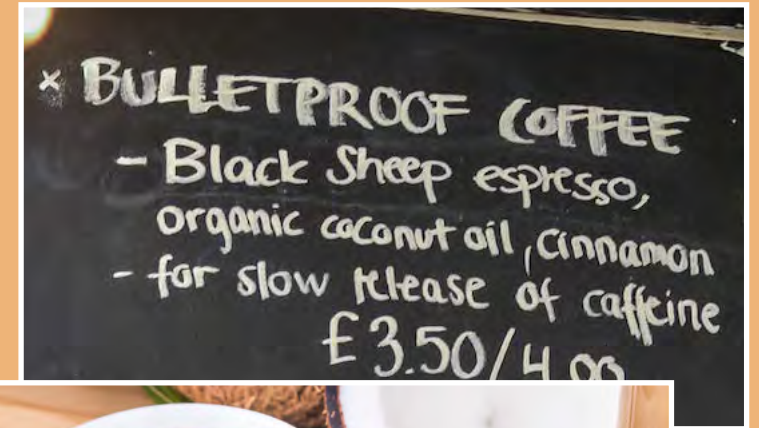 × BULLETPROOF COFFEE
- Black Sheep espresso,
organic coconut oil, cinnamon
- for slow release of caffeine
£3.50/4.00